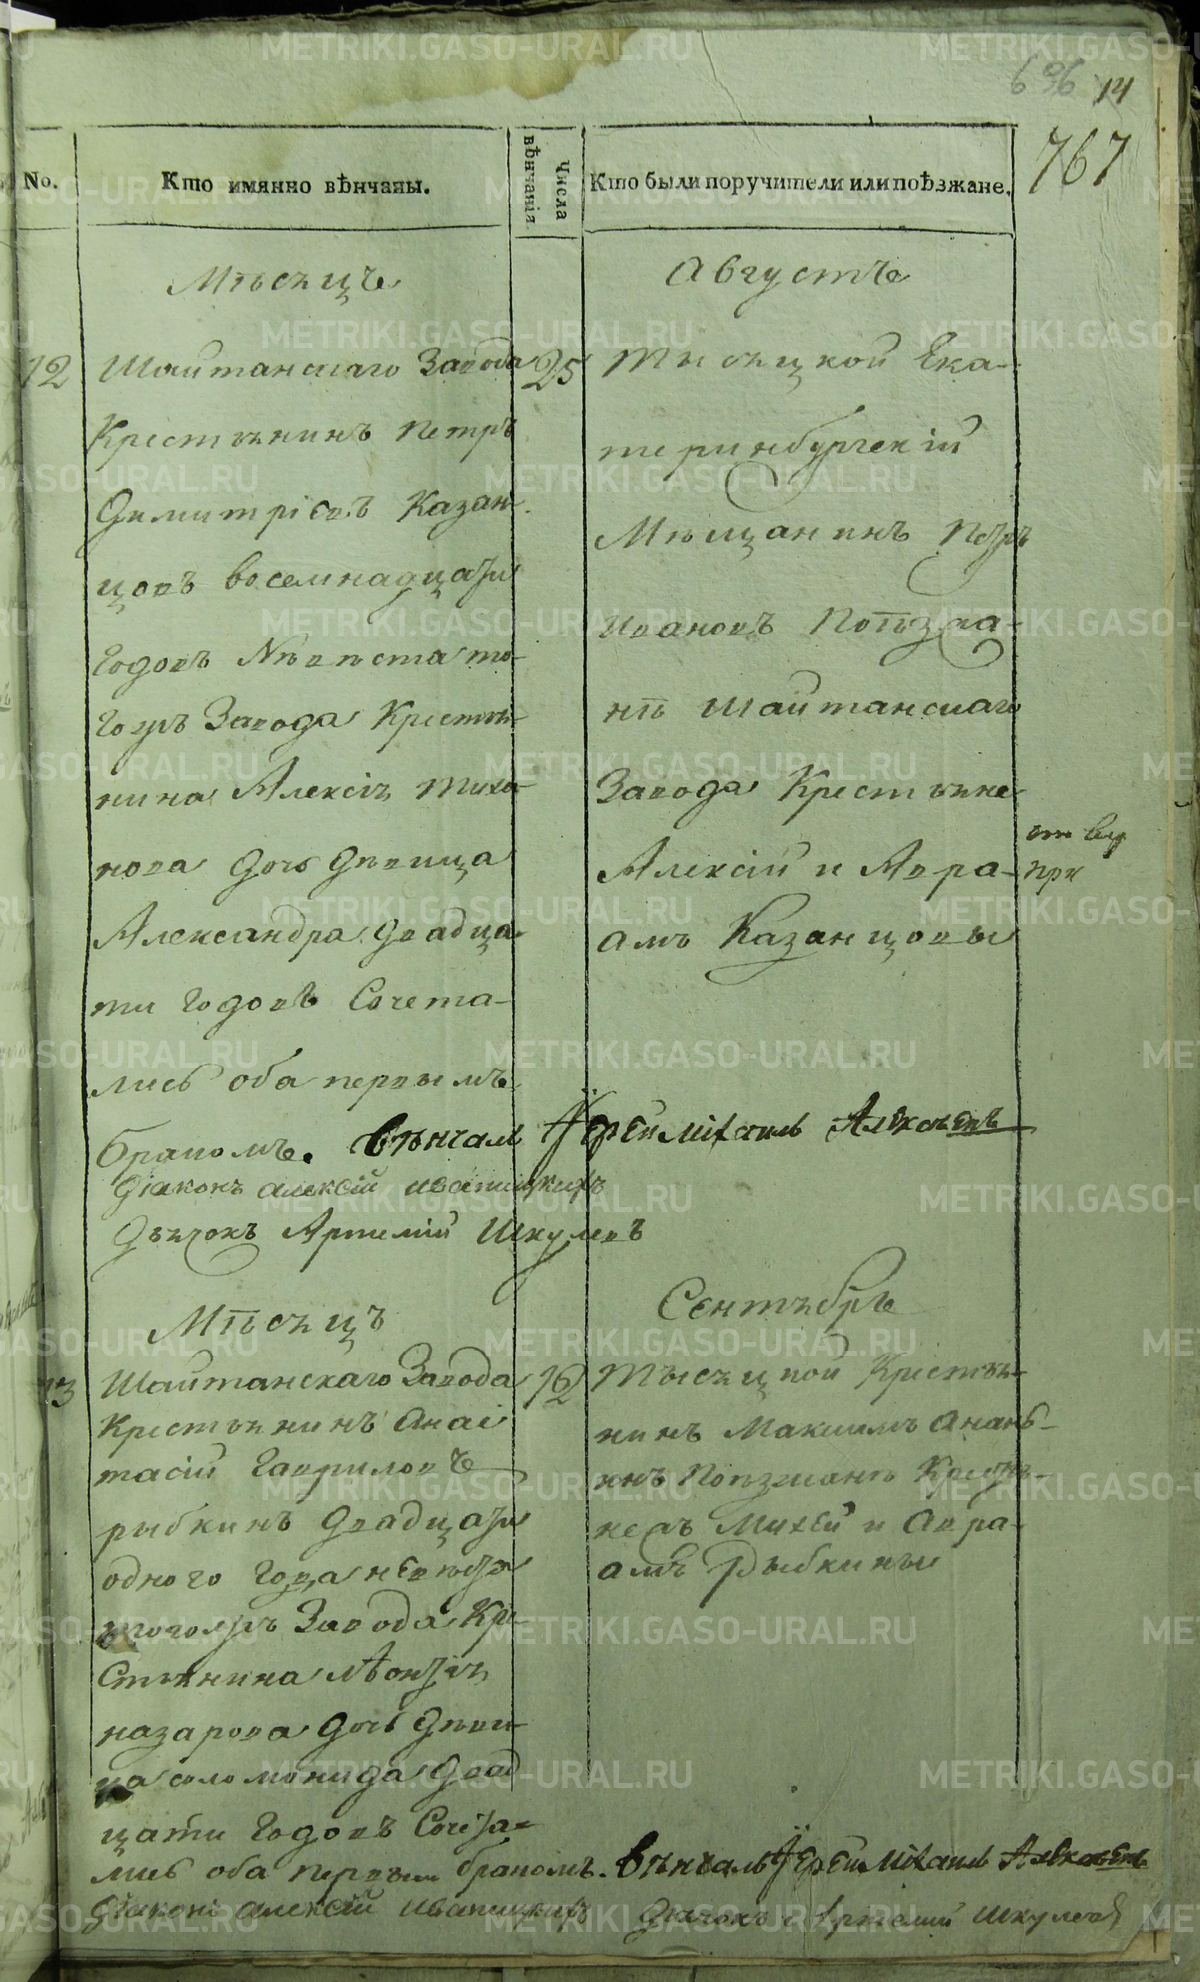 696 14
767
No.
Кто имянно вѣнчаны.
Числа вѣнчанія
Кто были поручители или поѣзжане.
Мѣсяцъ
Августъ
12
Шайтанскаго Завода
Крестьянинъ Петръ
Димитріевъ Казан-
цовъ восемнадцати
Годовъ Невѣста то-
гожъ Завода Крестья-
нина Алексія Тихо-
нова дочь дѣвица
Александра двадца-
ти годовъ Сочета-
лись оба первымъ
бракомъ. вѣнчалъ Іерей Міхаилъ Алексѣевъ
Діаконъ Алексій Иваницкихъ
Дьячокъ Артемій Шкулевъ
25
Тысяцкой Ека-
теринбургскій
Мѣщанинъ Петръ
Ивановъ Поѣзжа-
нѣ Шайтанскаго
Завода Крестьяне
Алексій и Авра-
амъ Казанцовы
при
Мѣсяцъ
Сентябрь
13
Шайтанскаго Завода
Крестьянинъ Анас
тасій Гавриловъ
рыбкинъ двадцати
одного Года невѣста
тогожъ Завода Кре-
стьянина Леонтія
назарова дочь дѣви-
ца соломонида двад
цати Годовъ Сочета-
лись оба первымъ бракомъ. вѣнчалъ Іерей Міхаилъ Алексѣевъ
Діаконъ Алексій Иваницкихъ Дьячокъ Артемий Шкулевъ
12
Тысяцкой Крестья-
нинъ Максимъ Анань-
инъ Поѣзжанѣ Крестья-
не Михей и Авра-
амъ Рыбкины
METRIKI.GASO-URAL.RU